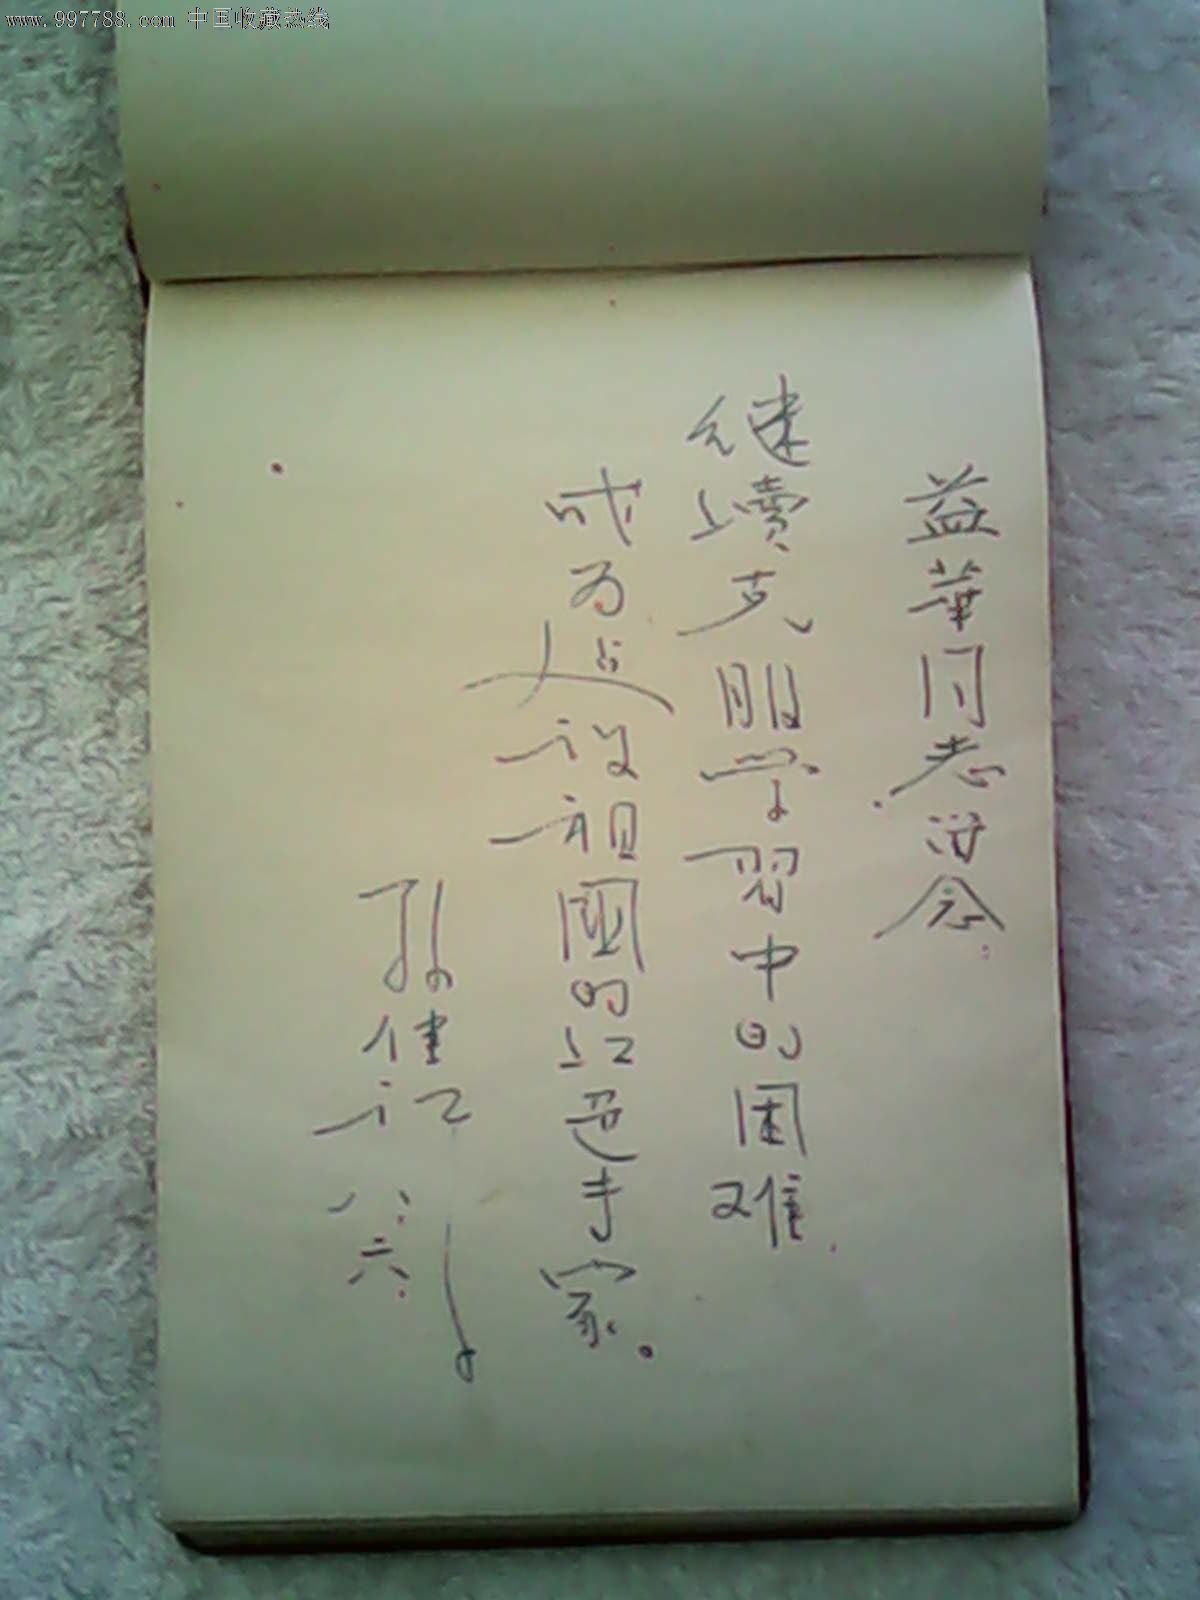 www.997788.com 中国收藏热线
益華同志念
继續克服学習中的困难
成为建设祖國的红色专家。
孙健记 八.六.